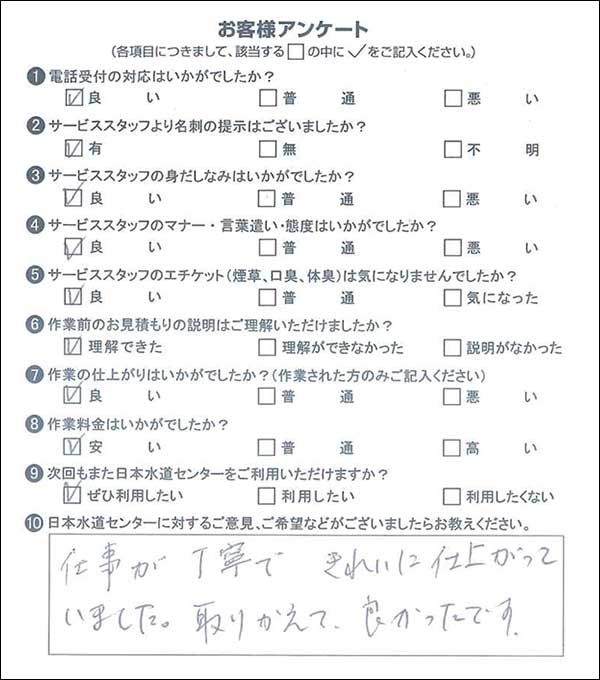 お客様アンケート
(各項目につきまして、該当する□の中に✓をご記入ください。)
❶電話受付の対応はいかがでしたか?
☑良い □普通 □悪い
❷サービススタッフより名刺の提示はございましたか?
☑有 □無 □不明
❸サービススタッフの身だしなみはいかがでしたか?
☑良い □普通 □悪い
❹サービススタッフのマナー・言葉遣い・態度はいかがでしたか?
☑良い □普通 □悪い
❺サービススタッフのエチケット(煙草、口臭、体臭)は気になりませんでしたか?
☑良い □普通 □気になった
❻作業前のお見積もりの説明はご理解いただけましたか?
☑理解できた □理解ができなかった □説明がなかった
❼作業の仕上がりはいかがでしたか?(作業された方のみご記入ください)
☑良い □普通 □悪い
❽作業料金はいかがでしたか?
☑安い □普通 □高い
❾次回もまた日本水道センターをご利用いただけますか?
☑ぜひ利用したい □利用したい □利用したくない
❿日本水道センターに対するご意見、ご希望などがございましたらお教えください。
仕事が丁寧で きれいに仕上がって
いました。取りかえて、良かったです。